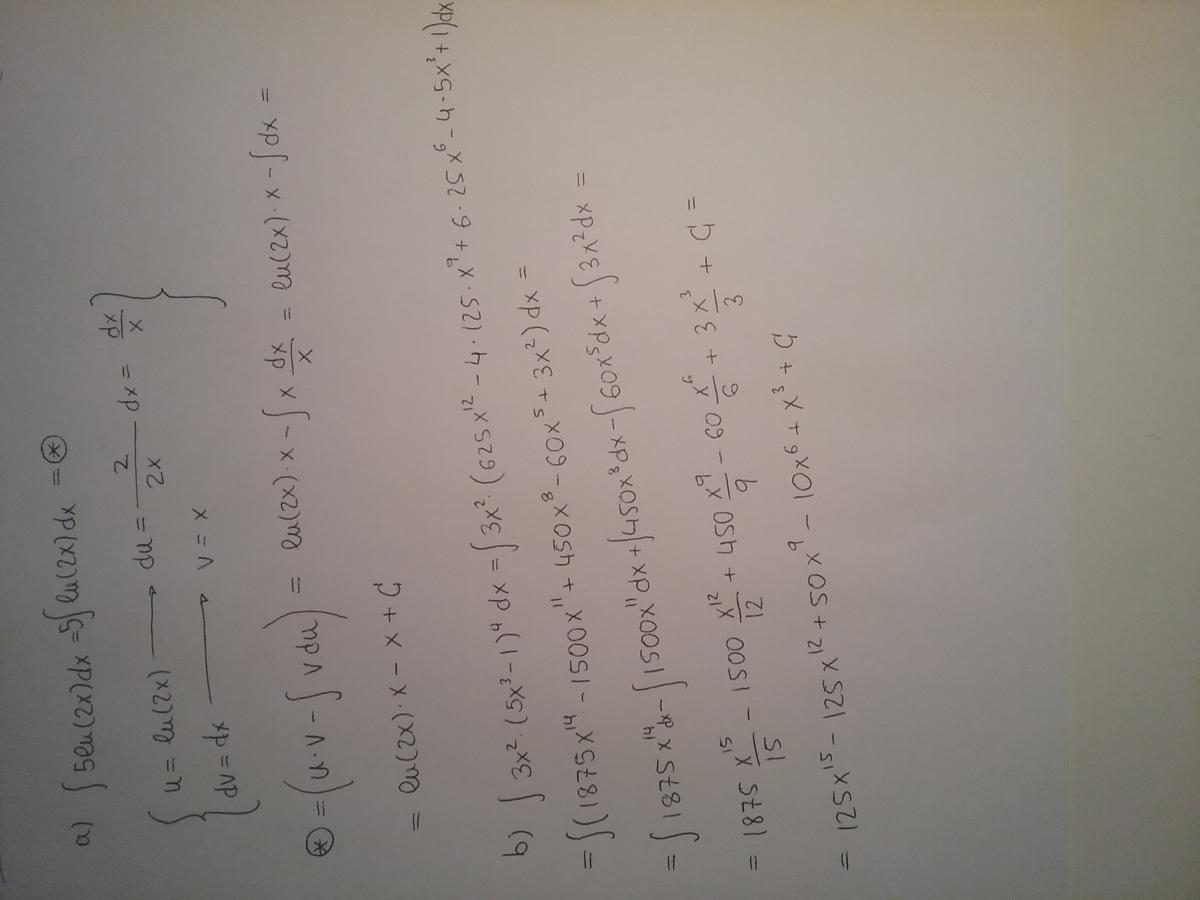 a) ∫ 5ln(2x)dx = 5∫ ln(2x)dx = ⊛
{ u = ln(2x) ⟶ du = 2/2x dx = dx/x }
{ dv = dx ⟶ v = x }
⊛ = (u·v - ∫ v du) = ln(2x)·x - ∫ x dx/x = ln(2x)·x - ∫ dx =
= ln(2x)·x - x + C
b) ∫ 3x²·(5x³-1)⁴ dx = ∫ 3x²·(625x¹² - 4·125·x⁹ + 6·25x⁶ - 4·5x³ + 1)dx
= ∫(1875x¹⁴ - 1500x¹¹ + 450x⁸ - 60x⁵ + 3x²) dx =
= ∫ 1875x¹⁴dx - ∫ 1500x¹¹dx + ∫ 450x⁸dx - ∫ 60x⁵dx + ∫ 3x²dx =
= 1875 x¹⁵/15 - 1500 x¹²/12 + 450 x⁹/9 - 60 x⁶/6 + 3 x³/3 + C =
= 125x¹⁵ - 125x¹² + 50x⁹ - 10x⁶ + x³ + C